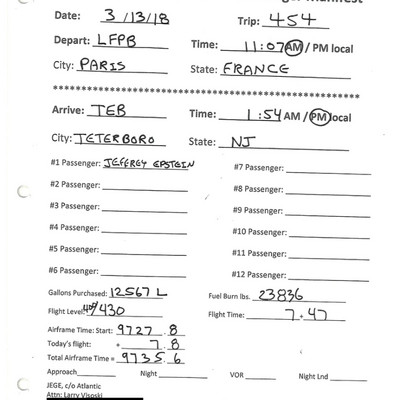 Manifest
Date: 3/13/18 Trip: 454
Depart: LFPB Time: 11:07 AM / PM local
City: PARIS State: FRANCE
************************************************
Arrive: TEB Time: 1:54 AM / PM local
City: TETERBORO State: NJ
#1 Passenger: JEFFREY EPSTEIN #7 Passenger:
#2 Passenger: #8 Passenger:
#3 Passenger: #9 Passenger:
#4 Passenger: #10 Passenger:
#5 Passenger: #11 Passenger:
#6 Passenger: #12 Passenger:
Gallons Purchased: 12567 L Fuel Burn lbs. 23836
Flight Level: 400/430 Flight Time: 7.47
Airframe Time: Start: 9727.8
Today's flight: + 7.8
Total Airframe Time = 9735.6
Approach Night VOR Night Lnd
JEGE, c/o Atlantic
Attn: Larry Visoski